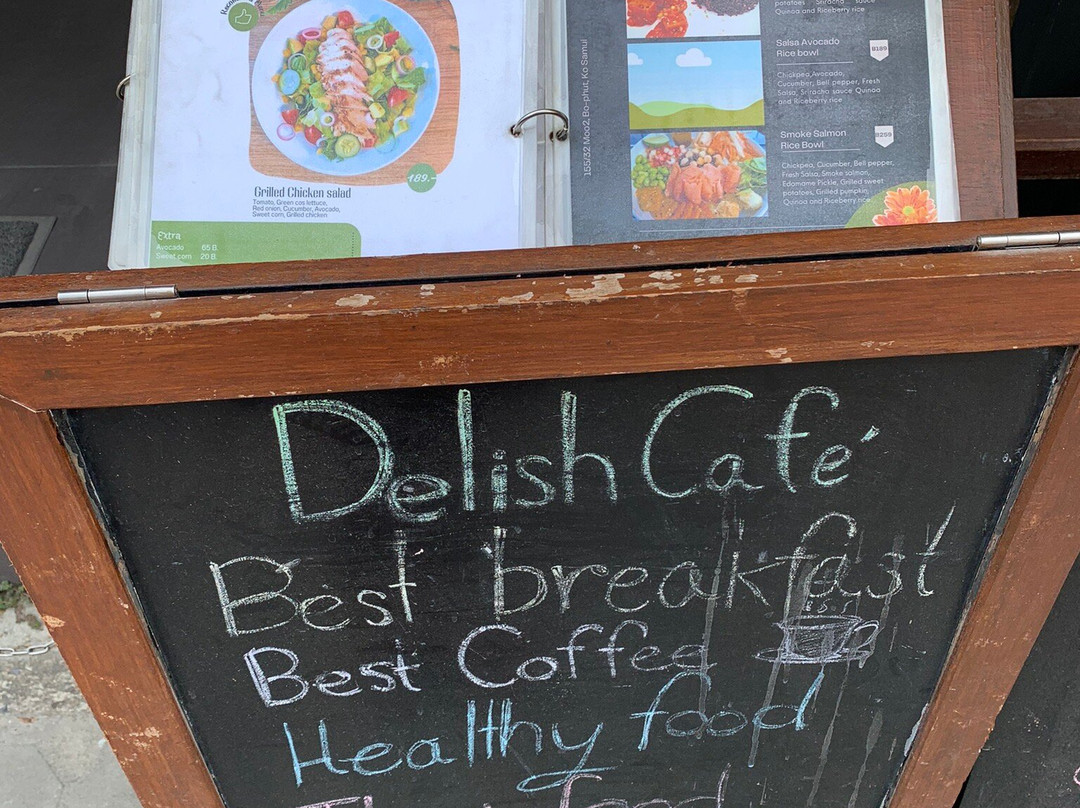 189.-
Grilled Chicken salad
Tomato, Green cos lettuce,
Red onion, Cucumber, Avocado,
Sweet corn, Grilled chicken
Extra
Avocado 65 B.
Sweet corn 20 B.
155/32 Moo2, Bo-phut, Ko Samui
potatoes Sriracha sauce
Quinoa and Riceberry rice
Salsa Avocado
Rice bowl
฿189
Chickpea,Avocado,
Cucumber, Bell pepper, Fresh
Salsa, Sriracha sauce Quinoa
and Riceberry rice
Smoke Salmon
Rice Bowl
฿259
Chickpea, Cucumber, Bell pepper,
Fresh Salsa, Smoke salmon,
Edamame Pickle, Grilled sweet
potatoes, Grilled pumpkin,
Quinoa and Riceberry rice
Delish Café
Best breakfast
Best Coffee
Healthy food
food